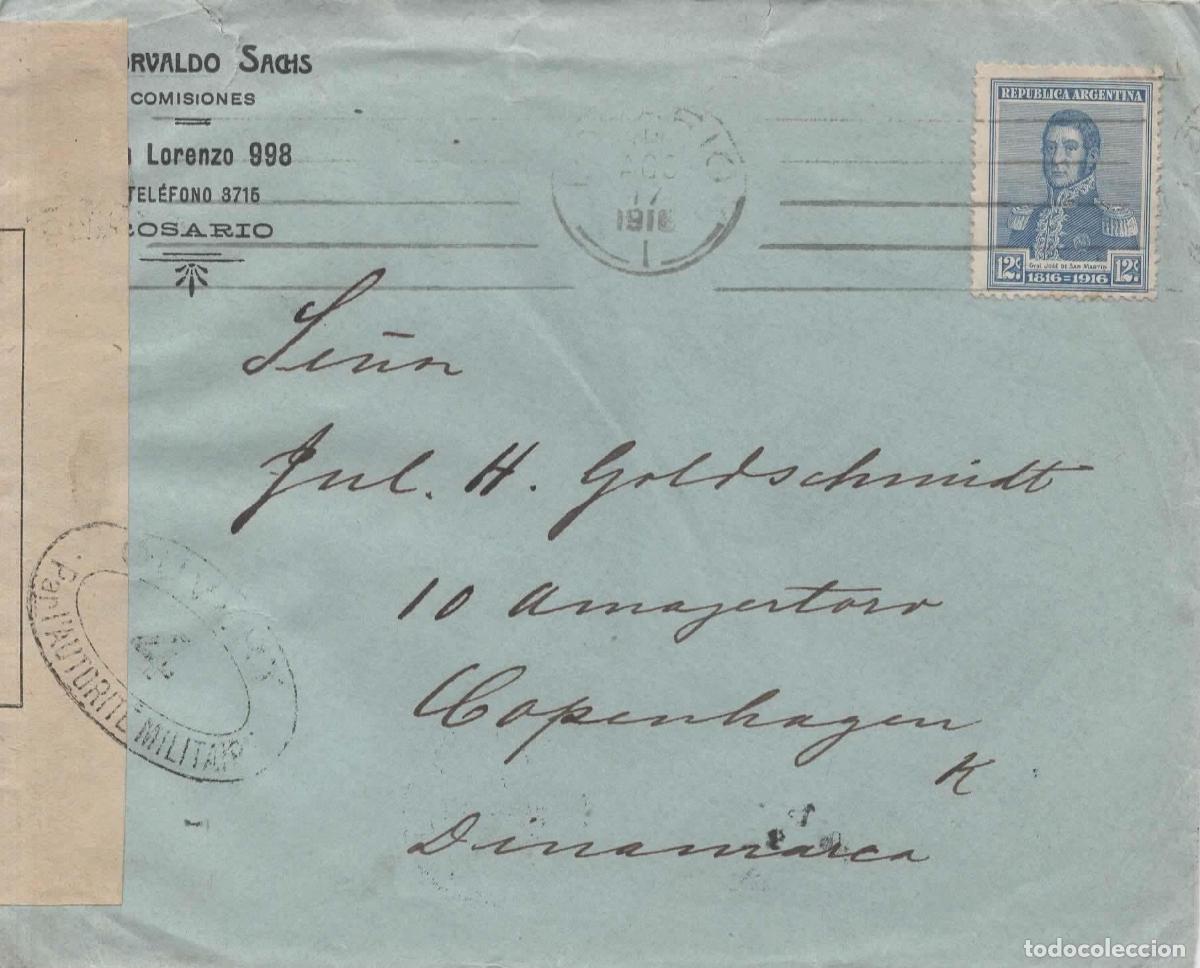 ORVALDO SACHS
COMISIONES
Lorenzo 998
TELÉFONO 3715
ROSARIO
AGO
17
1916
1
REPUBLICA ARGENTINA
12c. Gral. JOSÉ DE SAN MARTIN 12c.
1816=1916
Señor
Jul. H. Goldschmidt
10 Amagertorv
Copenhagen
K
Dinamarca
4
Par l'AUTORITÉ MILITAIRE
todocoleccion